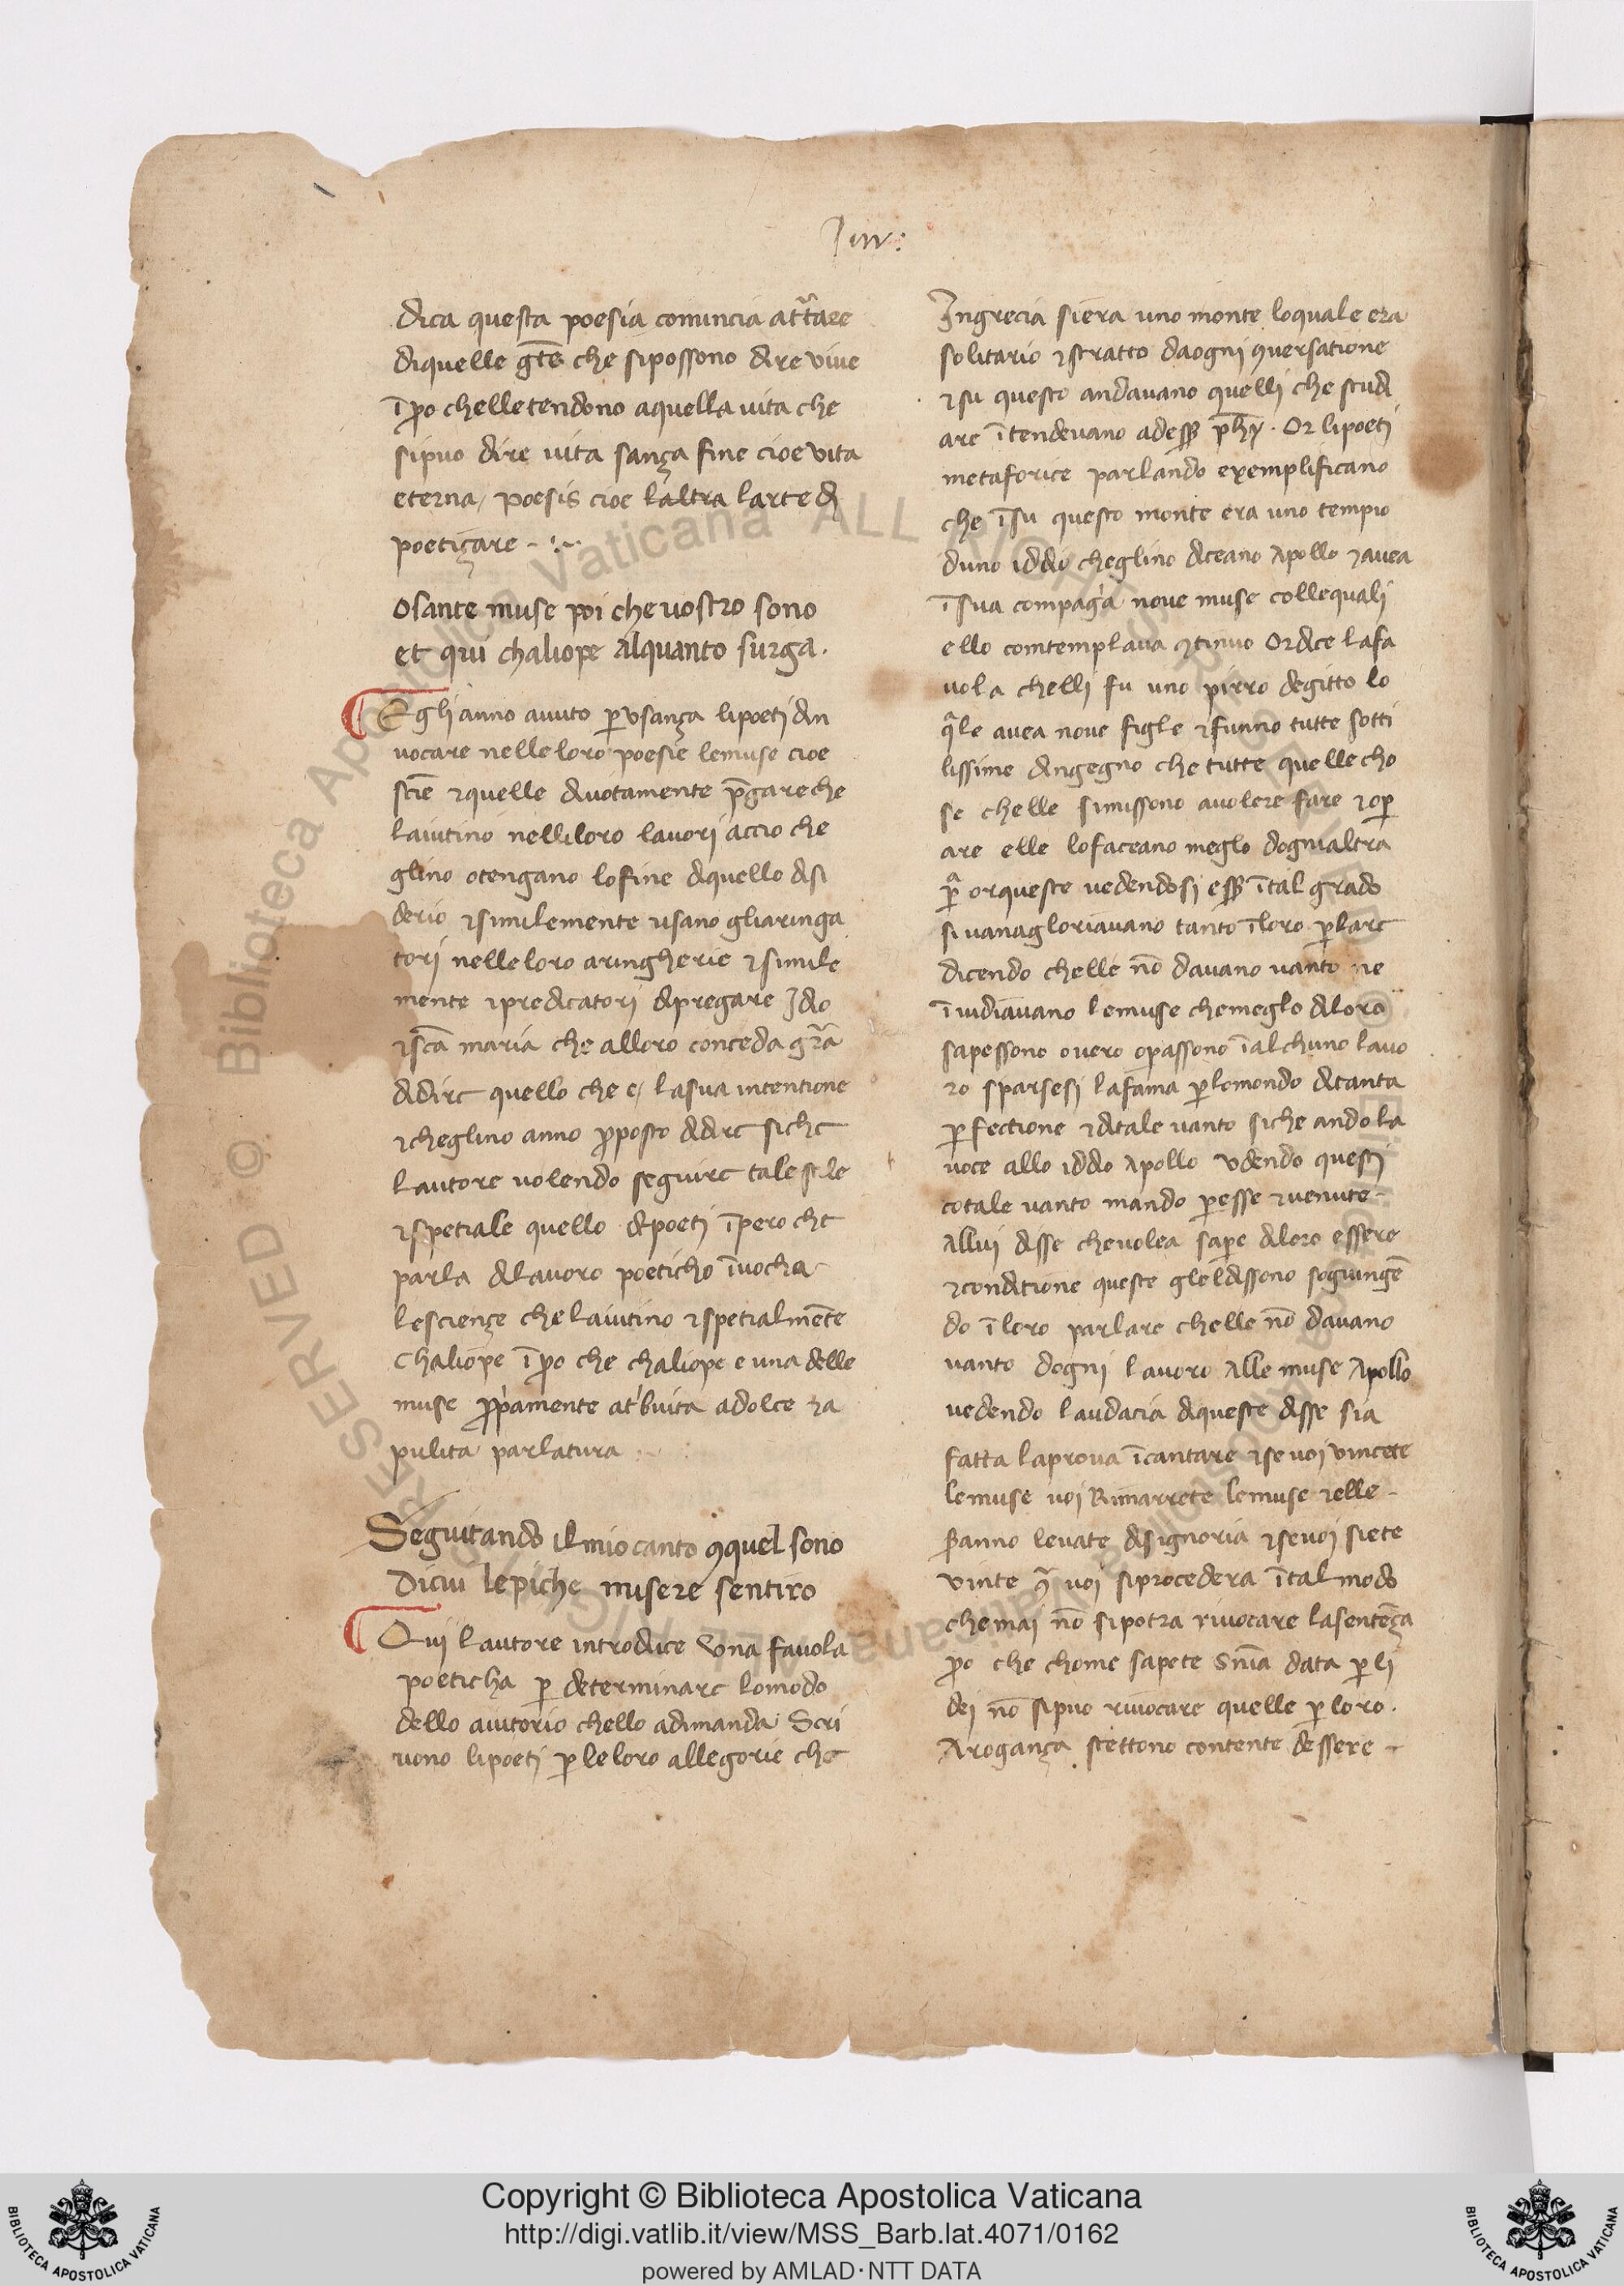 dica questa poesia comincia attrare
diquelle gēte che sipossono dire vive
īpo chelletendono aquella uita che
sipuo dire uita sança fine cioe vita
eterna / poesis cioe laltra larte di
poetiçare
O sante muse poi che uostro sono
et qui chaliope alquanto surga.
Egli anno auuto p usança lipoeti din
uocare nelleloro poesie lemuse cioe
sciē ⁊quelle diuotamente pgare che
laiutino nelliloro lauori accio che
glino otengano lofine diquello disi
derio ⁊similemente usano gliaringa
tori nelleloro aringherie ⁊simile
mente ⁊predicatori dipregare Idio
⁊scā maria che alloro conceda grā
didire quello che e / lasua intentione
⁊cheglino anno pposto didire siche
lautore uolendo seguire tale stile
⁊spetiale quello dipoeti īpero che
parla dilauoro poeticho īuocha
lesciençe che laiutino ⁊spetialmēte
chaliope īpo che chaliope e una delle
muse ppamente atbuita adolce ⁊a
pulita parlatura
Seguitando il mio canto ꝯquel sono
Dicui lepiche misere sentiro
Qui lautore introduce una fauola
poeticha p determinare lomodo
dello aiutorio chello adimanda Scri
uono lipoeti p leloro allegorie che
Ingrecia siera uno monte loquale era
solitario ⁊stratto daogni ꝯuersatione
⁊su questo andauano quelli che studi
are ītendeuano adess phy. Or lipoeti
metaforice parlando exemplificano
che īsu questo monte era uno tempio
duno iddio cheglino diceano Apollo ⁊auea
īsua compagia noue muse collequali
ello comtemplaua ꝯtinuo Ordice lafa
uola chelli fu uno pirro degitto lo
qle auea noue figle ⁊funno tutte sotti
lissime dingegno che tutte quelle cho
se chelle simissono auolere fare ⁊op
are elle lofaceano meglo dognialtra
p orqueste uedendosi ess ītal grado
siuanagloriauano tanto īloro plare
dicendo chelle nō dauano uanto ne
īuidiauano lemuse chemeglo diloro
sapessono ouero opassono īalchuno lauo
ro sparsesi lafama p lomondo ditanta
pfectione ⁊ditale uanto siche ando la
uoce allo iddio Apollo Udendo questi
cotale uanto mando pesse ⁊uenute
Allui disse cheuolea sape diloro essere
⁊conditione queste gleldissono sogiungē
do īloro parlare chelle nō dauano
uanto dogni lauoro Alle muse Apollo
uedendo laudacia diqueste disse sia
fatta laproua īcantare ⁊se uoi vincete
lemuse uoi Rimarrete lemuse ⁊elle
sanno leuate disignoria ⁊seuoi siete
vinte ꝯ uoi siprocedera ītal modo
chemai nō sipotra riuocare lasentēça
po che chome sapete Snīa data p li
dei nō sipuo riuocare quelle p loro.
Arogança stettono contente dessere
Copyright © Biblioteca Apostolica Vaticana
http://digi.vatlib.it/view/MSS_Barb.lat.4071/0162
powered by AMLAD·NTT DATA